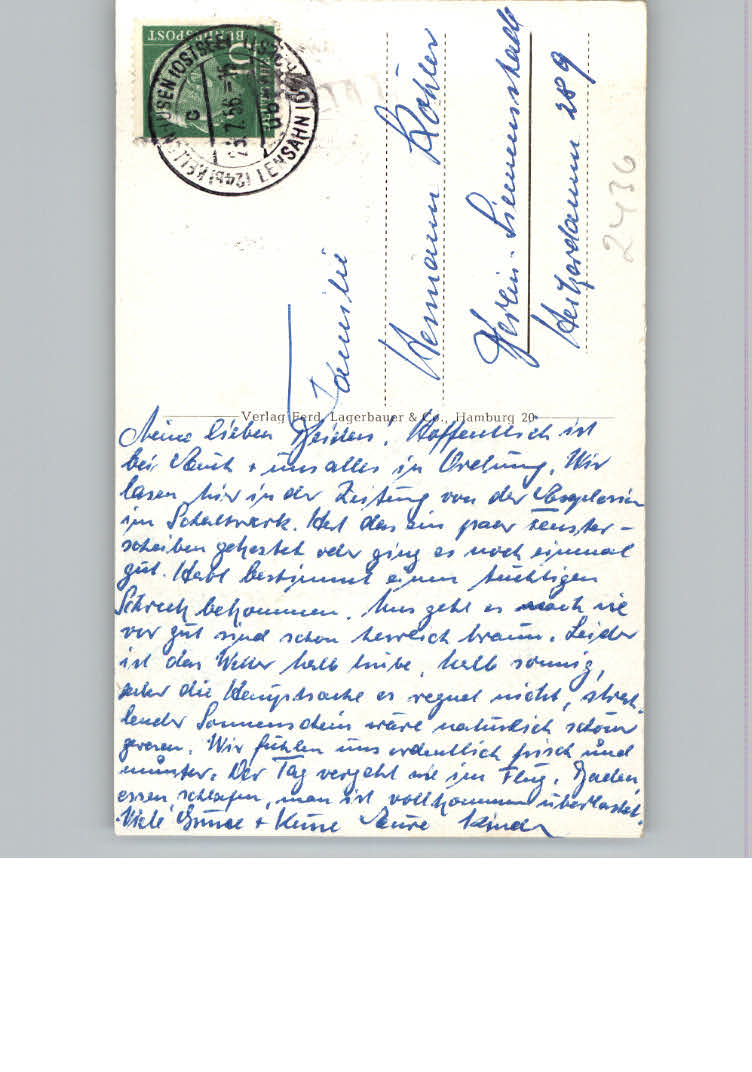 BUNDESPOST
10
(24b) KELLENHUSEN (OSTSEE)
LENSAHN
c
25.7.56.-15
Familie
Hermann Köhler
Berlin-Siemensstadt
289
2436
Verlag Ferd. Lagerbauer & Co., Hamburg 20
Meine lieben Beiden! Hoffentlich ist
bei Euch + uns alles in Ordnung. Wir
lasen hier in der Zeitung von der Explosion
im Schaltwerk. Hat das ein paar Fenster-
scheiben gekostet oder ging es noch einmal
gut. Habt bestimmt einen tüchtigen
Schreck bekommen. Uns geht es nach wie
vor gut sind schon herrlich braun. Leider
ist das Wetter halb trübe, halb sonnig,
aber die Hauptsache es regnet nicht, strah-
lender Sonnenschein wäre natürlich schöner
gewesen. Wir fühlen uns ordentlich frisch und
munter. Der Tag vergeht wie im Flug. Baden,
essen, schlafen, man ist vollkommen überlastet.
Viele Grüsse + Küsse Eure Kinder